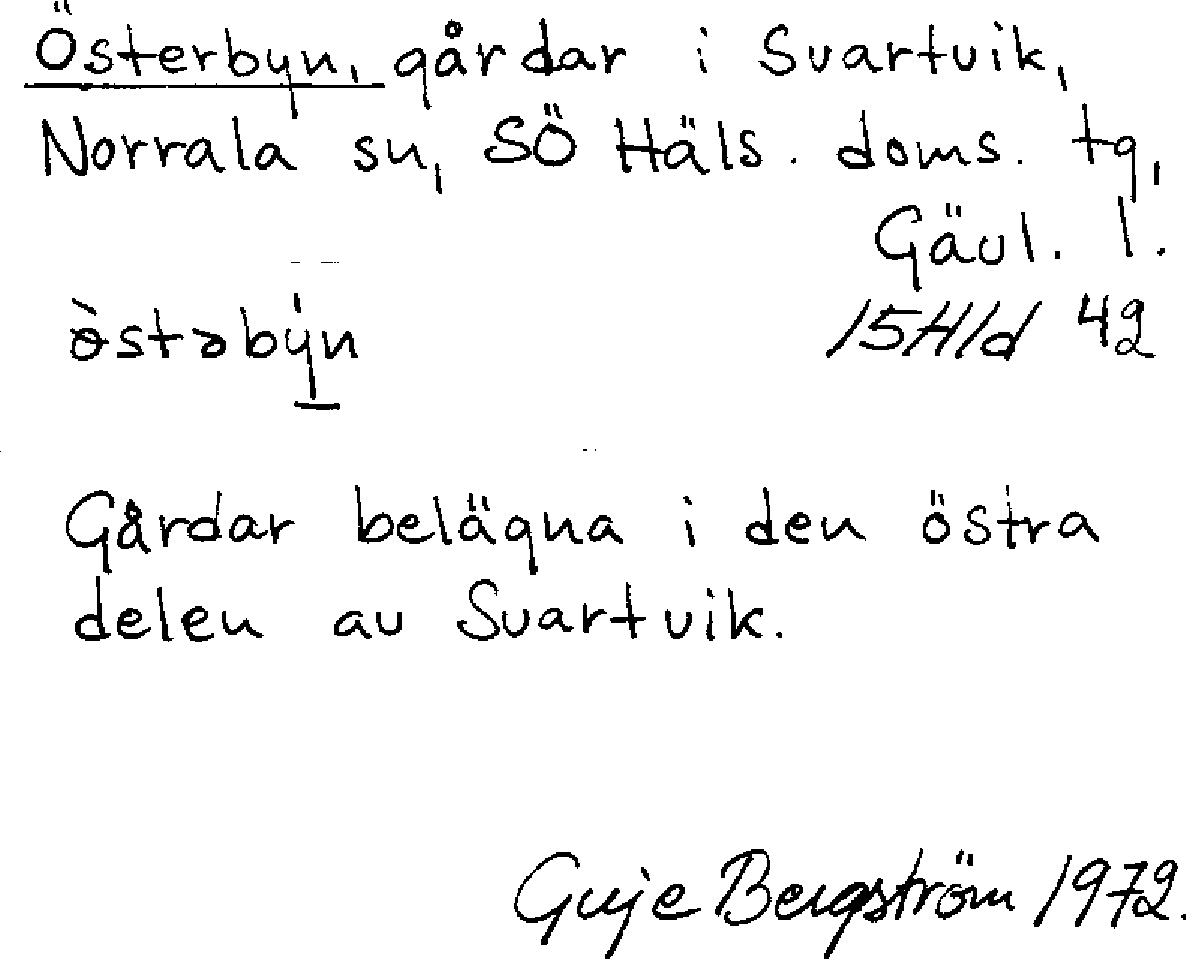 Österbyn, gårdar i Svartvik,
Norrala sn, SÖ Häls. doms. tg,
Gävl. l.
òstəbýn 15H1d 42
Gårdar belägna i den östra
delen av Svartvik.
Guje Bergström 1972.